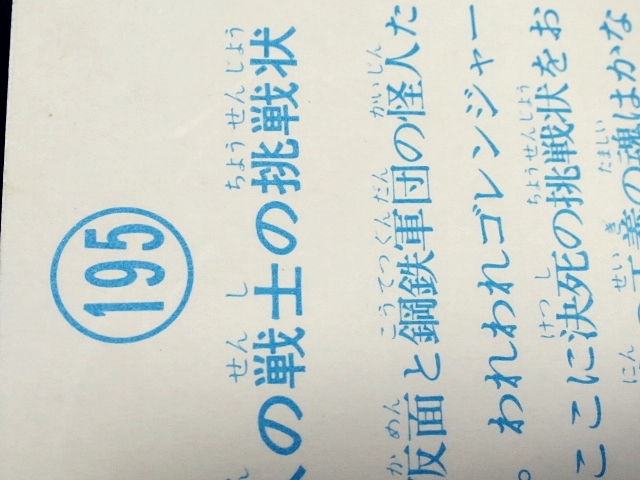 195
の戦士の挑戦状
仮面と鋼鉄軍団の怪人た
。われわれゴレンジャー
ここに決死の挑戦状をお
義の魂はかな